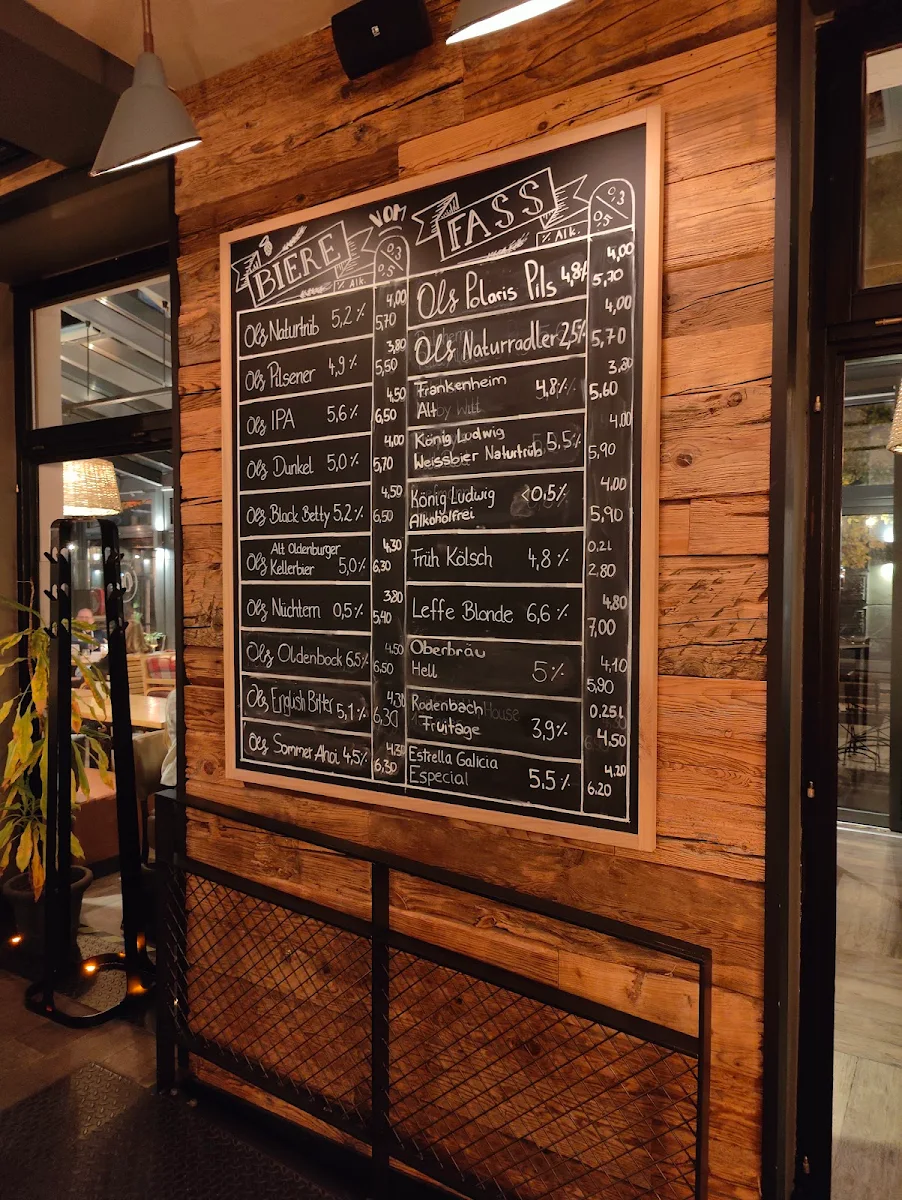 BIERE VOM FASS
% Alk. 0,3 0,5
Ols Naturtrüb 5,2% 4,00 5,70
Ols Pilsener 4,9% 3,80 5,50
Ols IPA 5,6% 4,50 6,50
Ols Dunkel 5,0% 4,00 5,70
Ols Black Betty 5,2% 4,50 6,50
Ols Alt Oldenburger
Kellerbier 5,0% 4,30 6,30
Ols Nüchtern 0,5% 3,80 5,40
Ols Oldenbock 6,5% 4,50 6,50
Ols English Bitter 5,1% 4,30 6,30
Ols Sommer Ahoi 4,5% 4,30 6,30
% Alk. 0,3 0,5
Ols Polaris Pils 4,8% 4,00 5,70
Ols Naturradler 2,5% 4,00 5,70
Frankenheim
Alt 4,8% 3,80 5,60
König Ludwig
Weissbier Naturtrüb 5,5% 4,00 5,90
König Ludwig
Alkoholfrei <0,5% 4,00 5,90
Früh Kölsch 4,8% 0,2L 2,80
Leffe Blonde 6,6% 4,80 7,00
Oberbräu
Hell 5% 4,10 5,90
Rodenbach
Fruitage 3,9% 0,25L 4,50
Estrella Galicia
Especial 5,5% 4,20 6,20